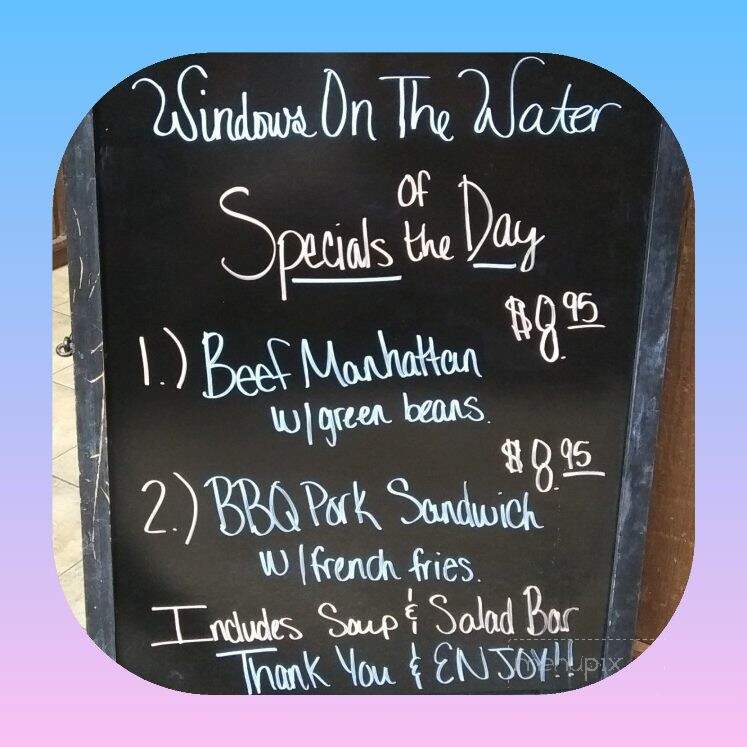 Windows On The Water
Specials of the Day
$8.95
1.) Beef Manhattan
w/green beans.
$8.95
2.) BBQ Pork Sandwich
w/french fries.
Includes Soup & Salad Bar
Thank You & ENJOY!!
menupix